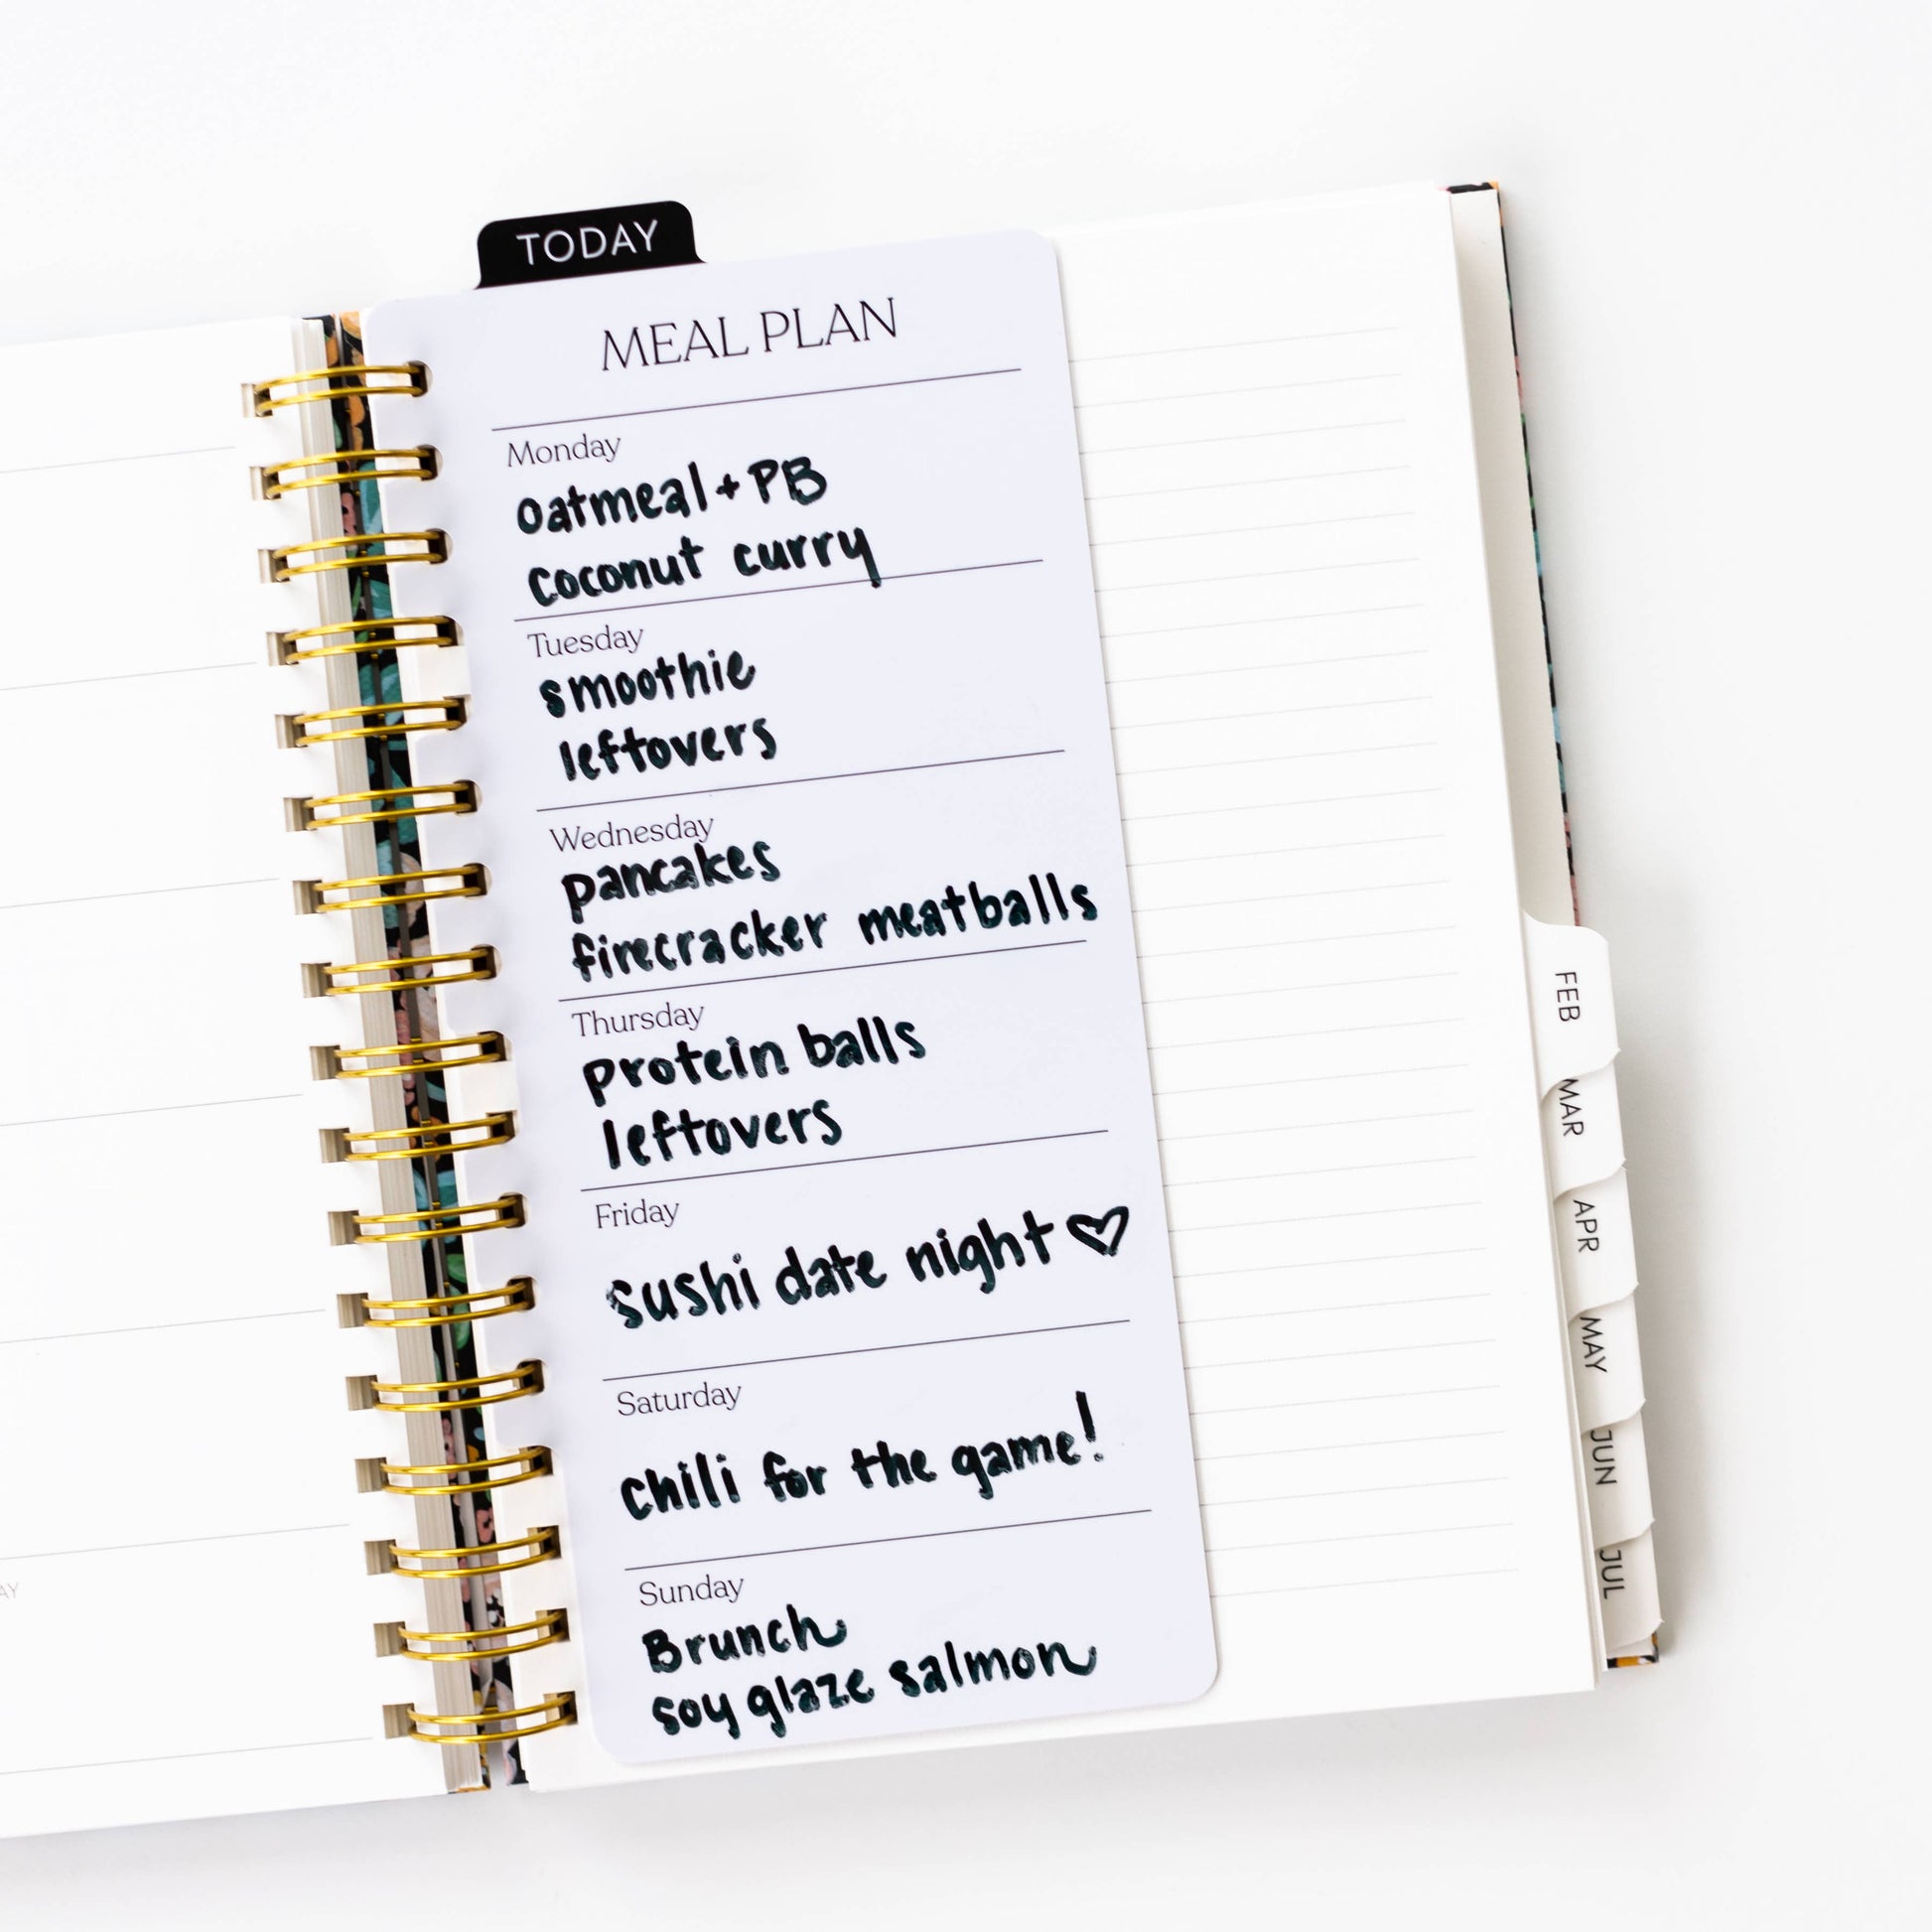 TODAY
MEAL PLAN
Monday
oatmeal + PB
coconut curry
Tuesday
smoothie
leftovers
Wednesday
pancakes
firecracker meatballs
Thursday
protein balls
leftovers
Friday
sushi date night ♡
Saturday
chili for the game!
Sunday
Brunch
soy glaze salmon
FEB
MAR
APR
MAY
JUN
JUL